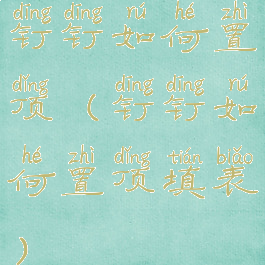 dīng dīng rú hé zhì
钉钉如何置
dǐng dīng dīng rú
顶(钉钉如
hé zhì dǐng tián biǎo
何置顶填表
)